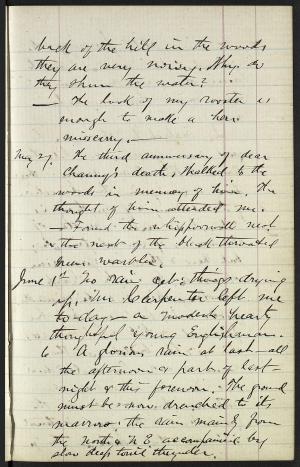 back of the hill in the woods
they are very noisy. Why do
they shun the water?
— The look of my rooster is
enough to make a hen
miscarry. —
May 27. The third anniversary of dear
Channy's death, walked to the
woods in memory of him. The
thought of him attended me.
— Found the whippoorwill nest
& the nest of the black throated
green warbler.
June 1st No rain yet; things drying
up. Mr Carpenter left me
to-day — a modest, hearty
thoughtful young Englishman.
6 A glorious rain at last — all
the afternoon & part of last
night & this forenoon. The ground
must be now drenched to its
marrow; the rain mainly from
the North & N.E. accompanied by
slow deep toned thunder.